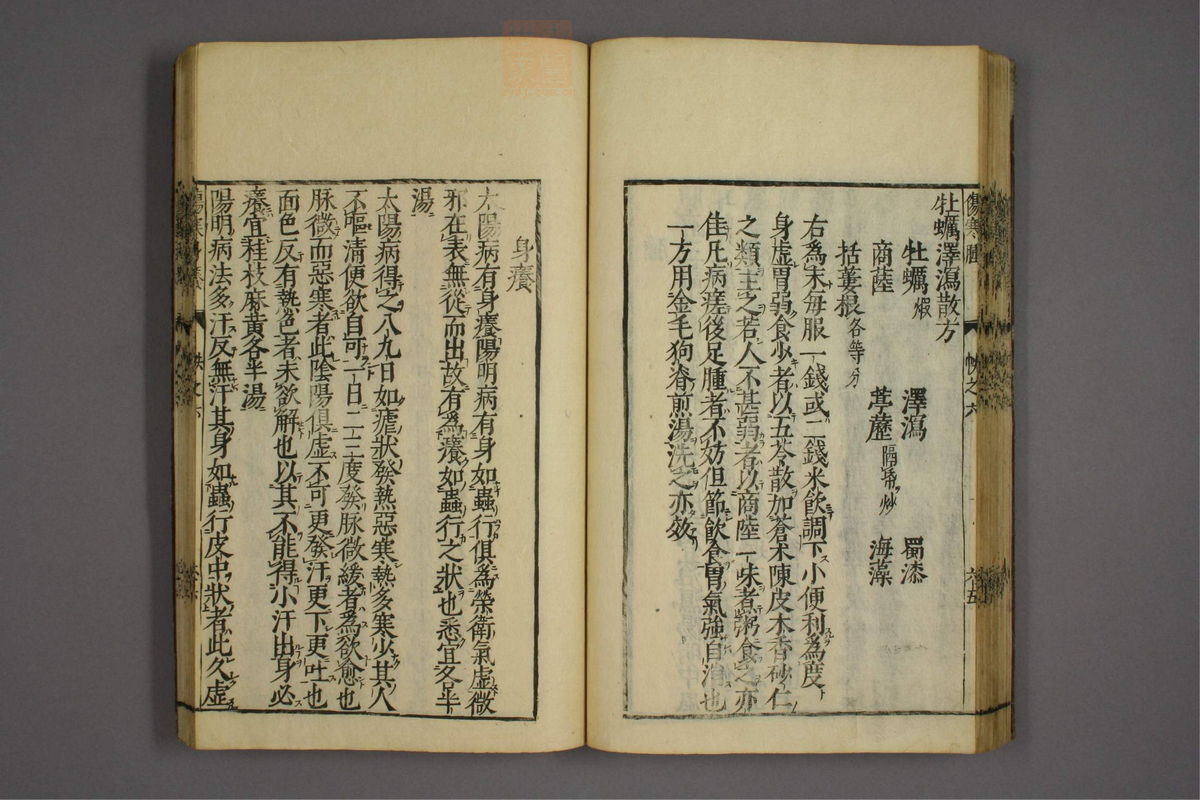 牡蠣澤瀉散方
牡蠣煆 澤瀉 蜀漆
商陸 葶藶隔紙炒 海藻
括蔞根各等分
右為末毎服一錢或二錢米飲調下小便利為度
身虚胃弱食少者以五苓散加蒼朮陳皮木香砂仁
之類主之若人不甚弱者以商陸一味煮粥食之亦
佳凡病瘥後足腫者不妨但節飲食胃氣強自治也
一方用金毛狗脊煎湯洗之亦效
身癢
太陽病有身癢陽明病有身如蟲行俱為榮衛氣虚微
邪在表無從而出故有為癢如蟲行之狀也悉宜各半
湯
太陽病得之八九日如瘧狀發熱惡寒熱多寒少其人
不嘔清便欲自可一日二三度發脉微緩者為欲愈也
脉微而惡寒者此陰陽俱虚不可更發汗更下更吐也
面色反有熱色者未欲解也以其不能得小汗出身必
癢宜桂枝麻黄各半湯
陽明病法多汗反無汗其身如蟲行皮中狀者此久虚